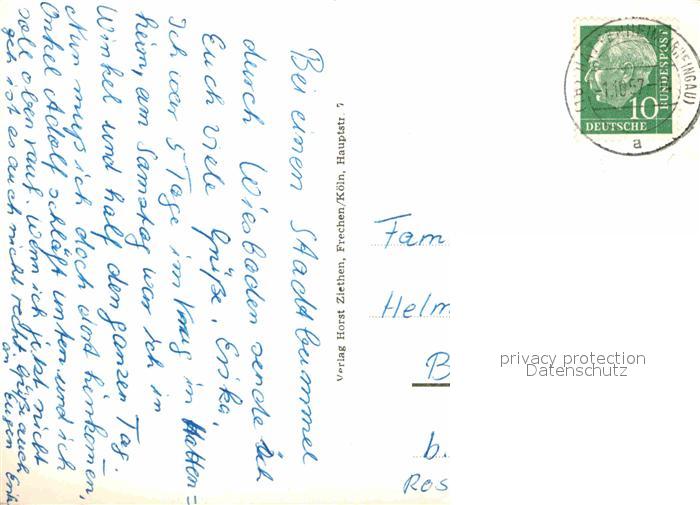 Bei einen Stadtbummel
durch Wiesbaden sende ich
Euch viele Grüße. Erika.
Ich war 5 Tage im Krug in Hatten=
heim, am Samstag war ich in
Winkel und half den ganzen Tag.
Nun muß ich doch dort hinkomen,
Onkel Adolf schläft unten und ich
soll oben rauf. Wenn ich jetzt nicht
geh ist es auch nicht recht. Grüße auch
an Eugen
Verlag Horst Ziethen, Frechen/Köln, Hauptstr. 7
(RHEINGAU)
-1.10.57
a
10
DEUTSCHE
BUNDESPOST
Fam
Helm
B
b.
Ros
privacy protection
Datenschutz